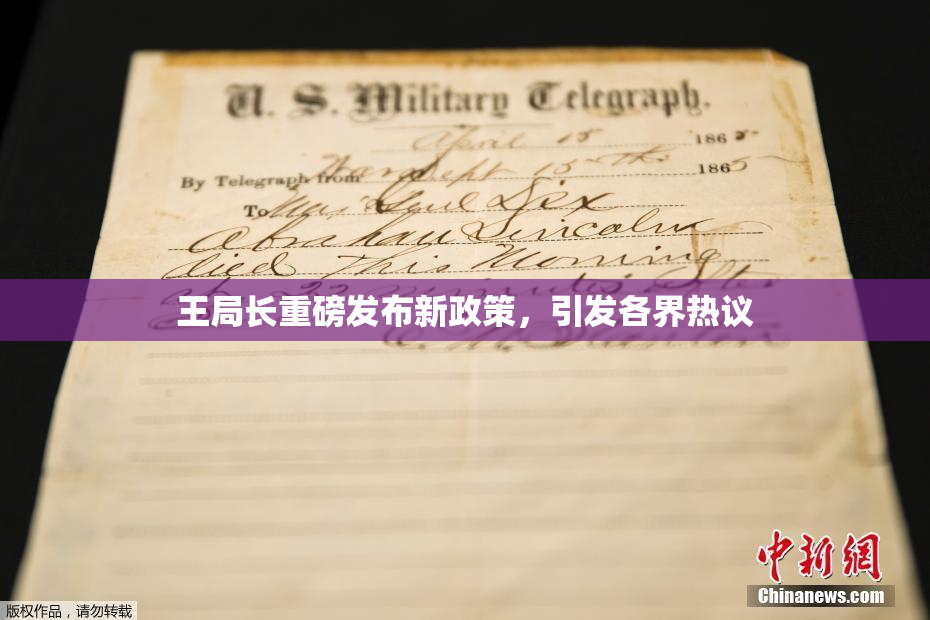 U. S. Military Telegraph.
April 15 1865
By Telegraph from War Dept 15th 1865
To Maj Genl Dix
Abraham Lincoln
died This Morning
at 22 minutes after
王局长重磅发布新政策，引发各界热议
E. M. Stanton
中新网
Chinanews.com
版权作品，请勿转载